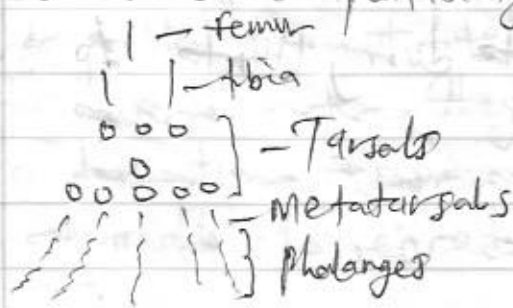 femur
tibia
Tarsals
metatarsals
Phalanges